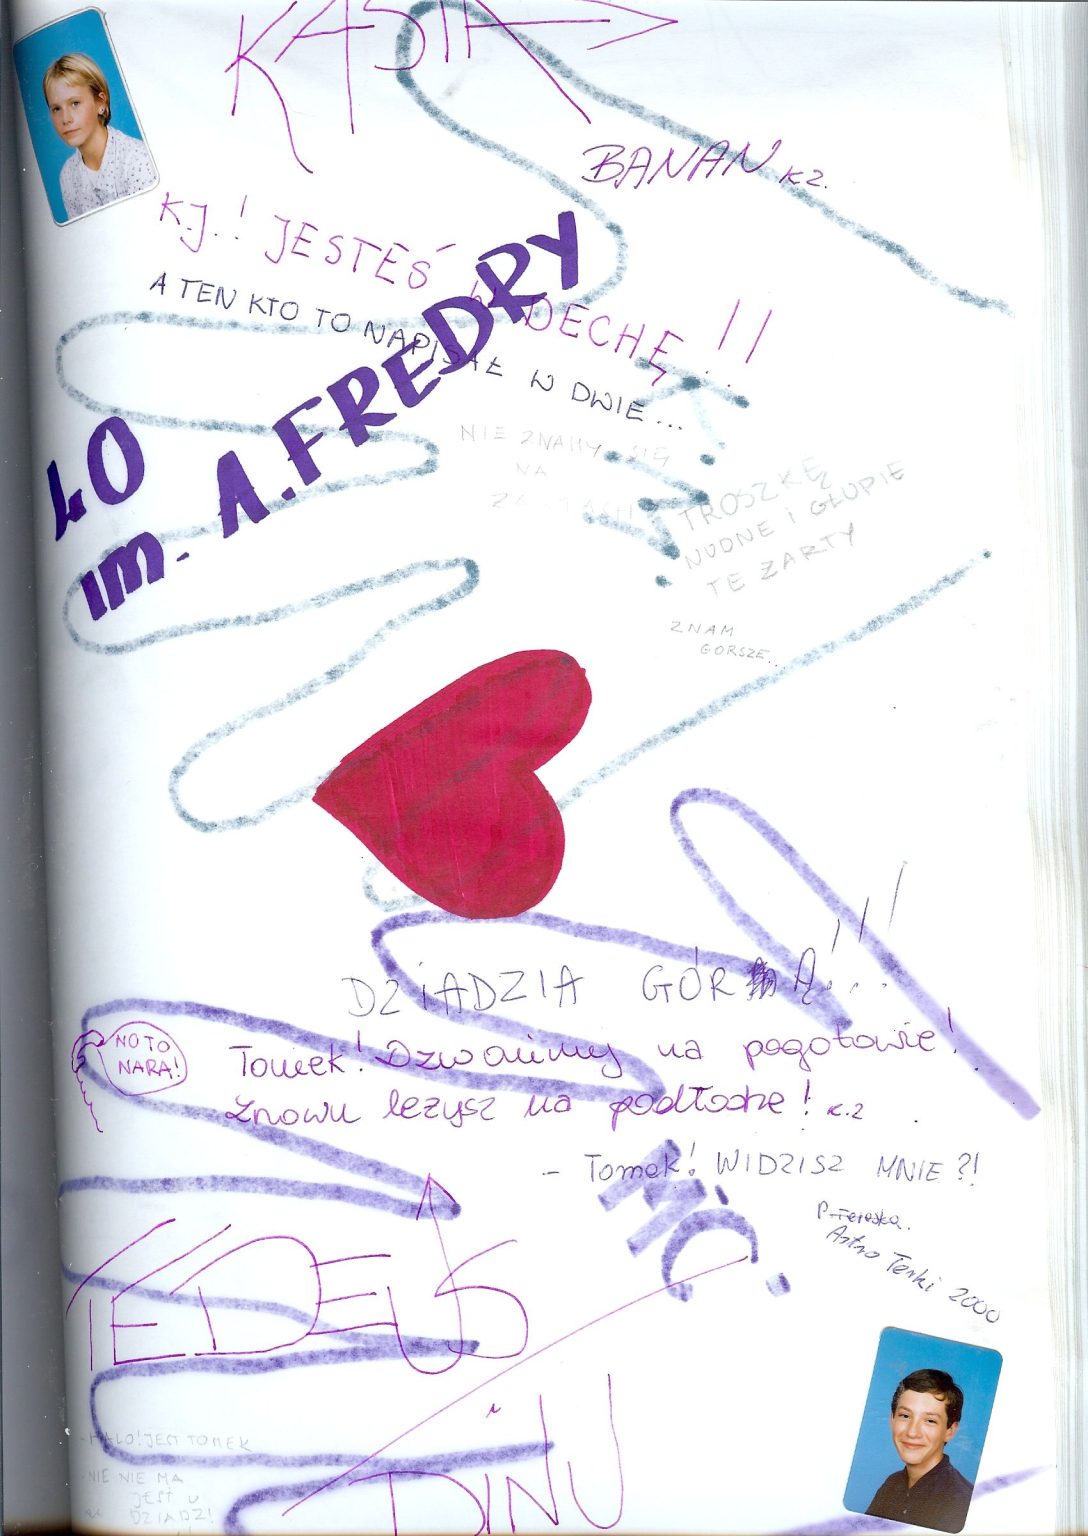 KASIA
BANAN K.Z.
K.J.! JESTEŚ W DECHĘ!!
A TEN KTO TO NAPISAŁ W DWIE...
LO
IM. A. FREDRY
NIE ZNAMY SIĘ
NA
ŻARTACH
TROSZKĘ
NUDNE I GŁUPIE
TE ŻARTY
ZNAM
GORSZE...
DZIADZIA GÓRĄ!!!
NO TO
NARA!
Tomek! Dzwonimy na pogotowie!
Znowu leżysz na podłodze! K.Z.
- Tomek! WIDZISZ MNIE?!
MC.
P. Tereska.
Astro Terki 2000
TEDEUS
i
DINU
- HALO! JEST TOMEK
- NIE NIE MA
JEST U
DZIADZI